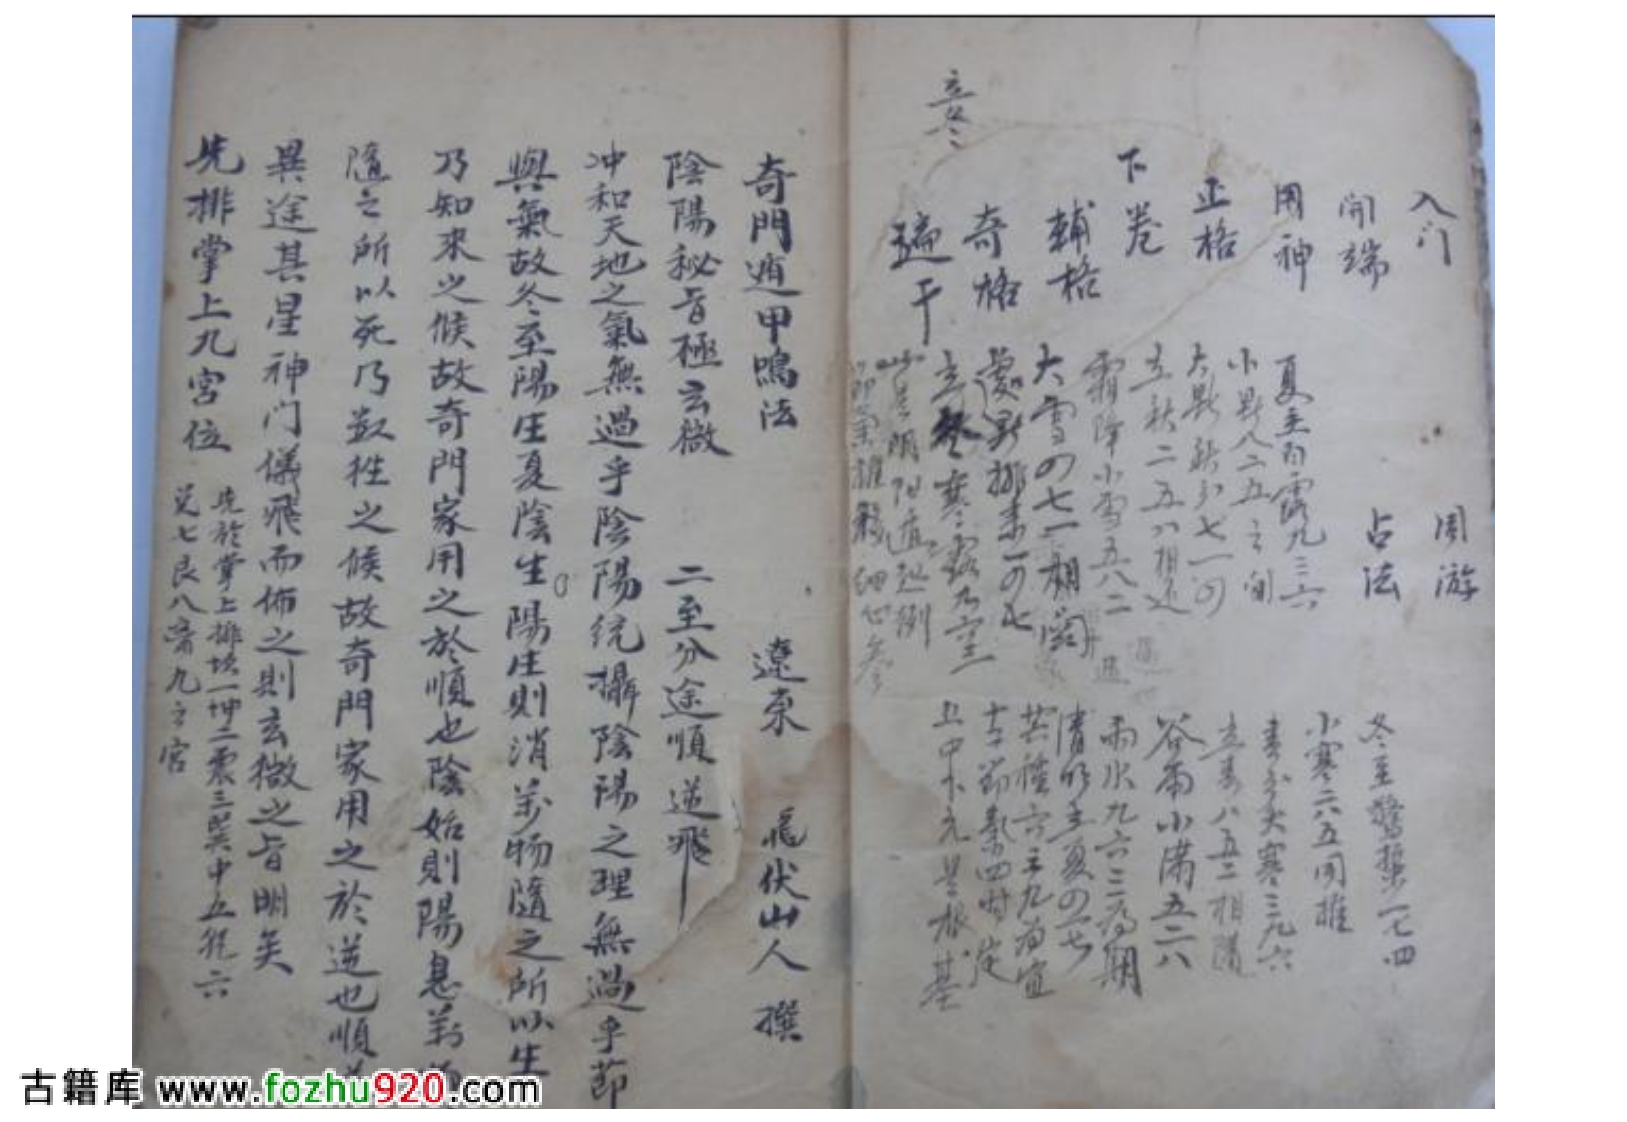 入门
周游
開端
占法
用神
正格
下卷
輔格
奇格
遁干
立冬
夏至白露九三六
小暑八二五之間
大暑秋分七一四
立秋二五八相还
霜降小雪五八二
大雪四七一相関
處暑排来一四七
立冬寒露九三
此是陰阳遁起例
節氣推移細心参
冬至驚蟄一七四
小寒二八五同推
春分大寒三九六
立春八五二相隨
谷雨小满五二八
雨水九六三為期
清明立夏四一七
芒種六三九为宜
十二節氣四時定
上中下元是根基
奇門遁甲鳴法
遼東 伏山人 撰
陰陽秘旨極玄微 二至分途順逆飛
冲和天地之氣無過乎陰陽统攝陰陽之理無過乎節
與氣故冬至陽生夏陰生陽生則消萬物隨之所以生
乃知來之候故奇門家用之於順也陰始則陽息萬
隨之所以死乃数往之候故奇門家用之於逆也順
異途其星神门儀飛而佈之則玄微之旨明矣
先排掌上九宮位
先於掌上排坎一坤二震三巽中五乾六
兑七艮八离九之宮
古籍库 www.fozhu920.com